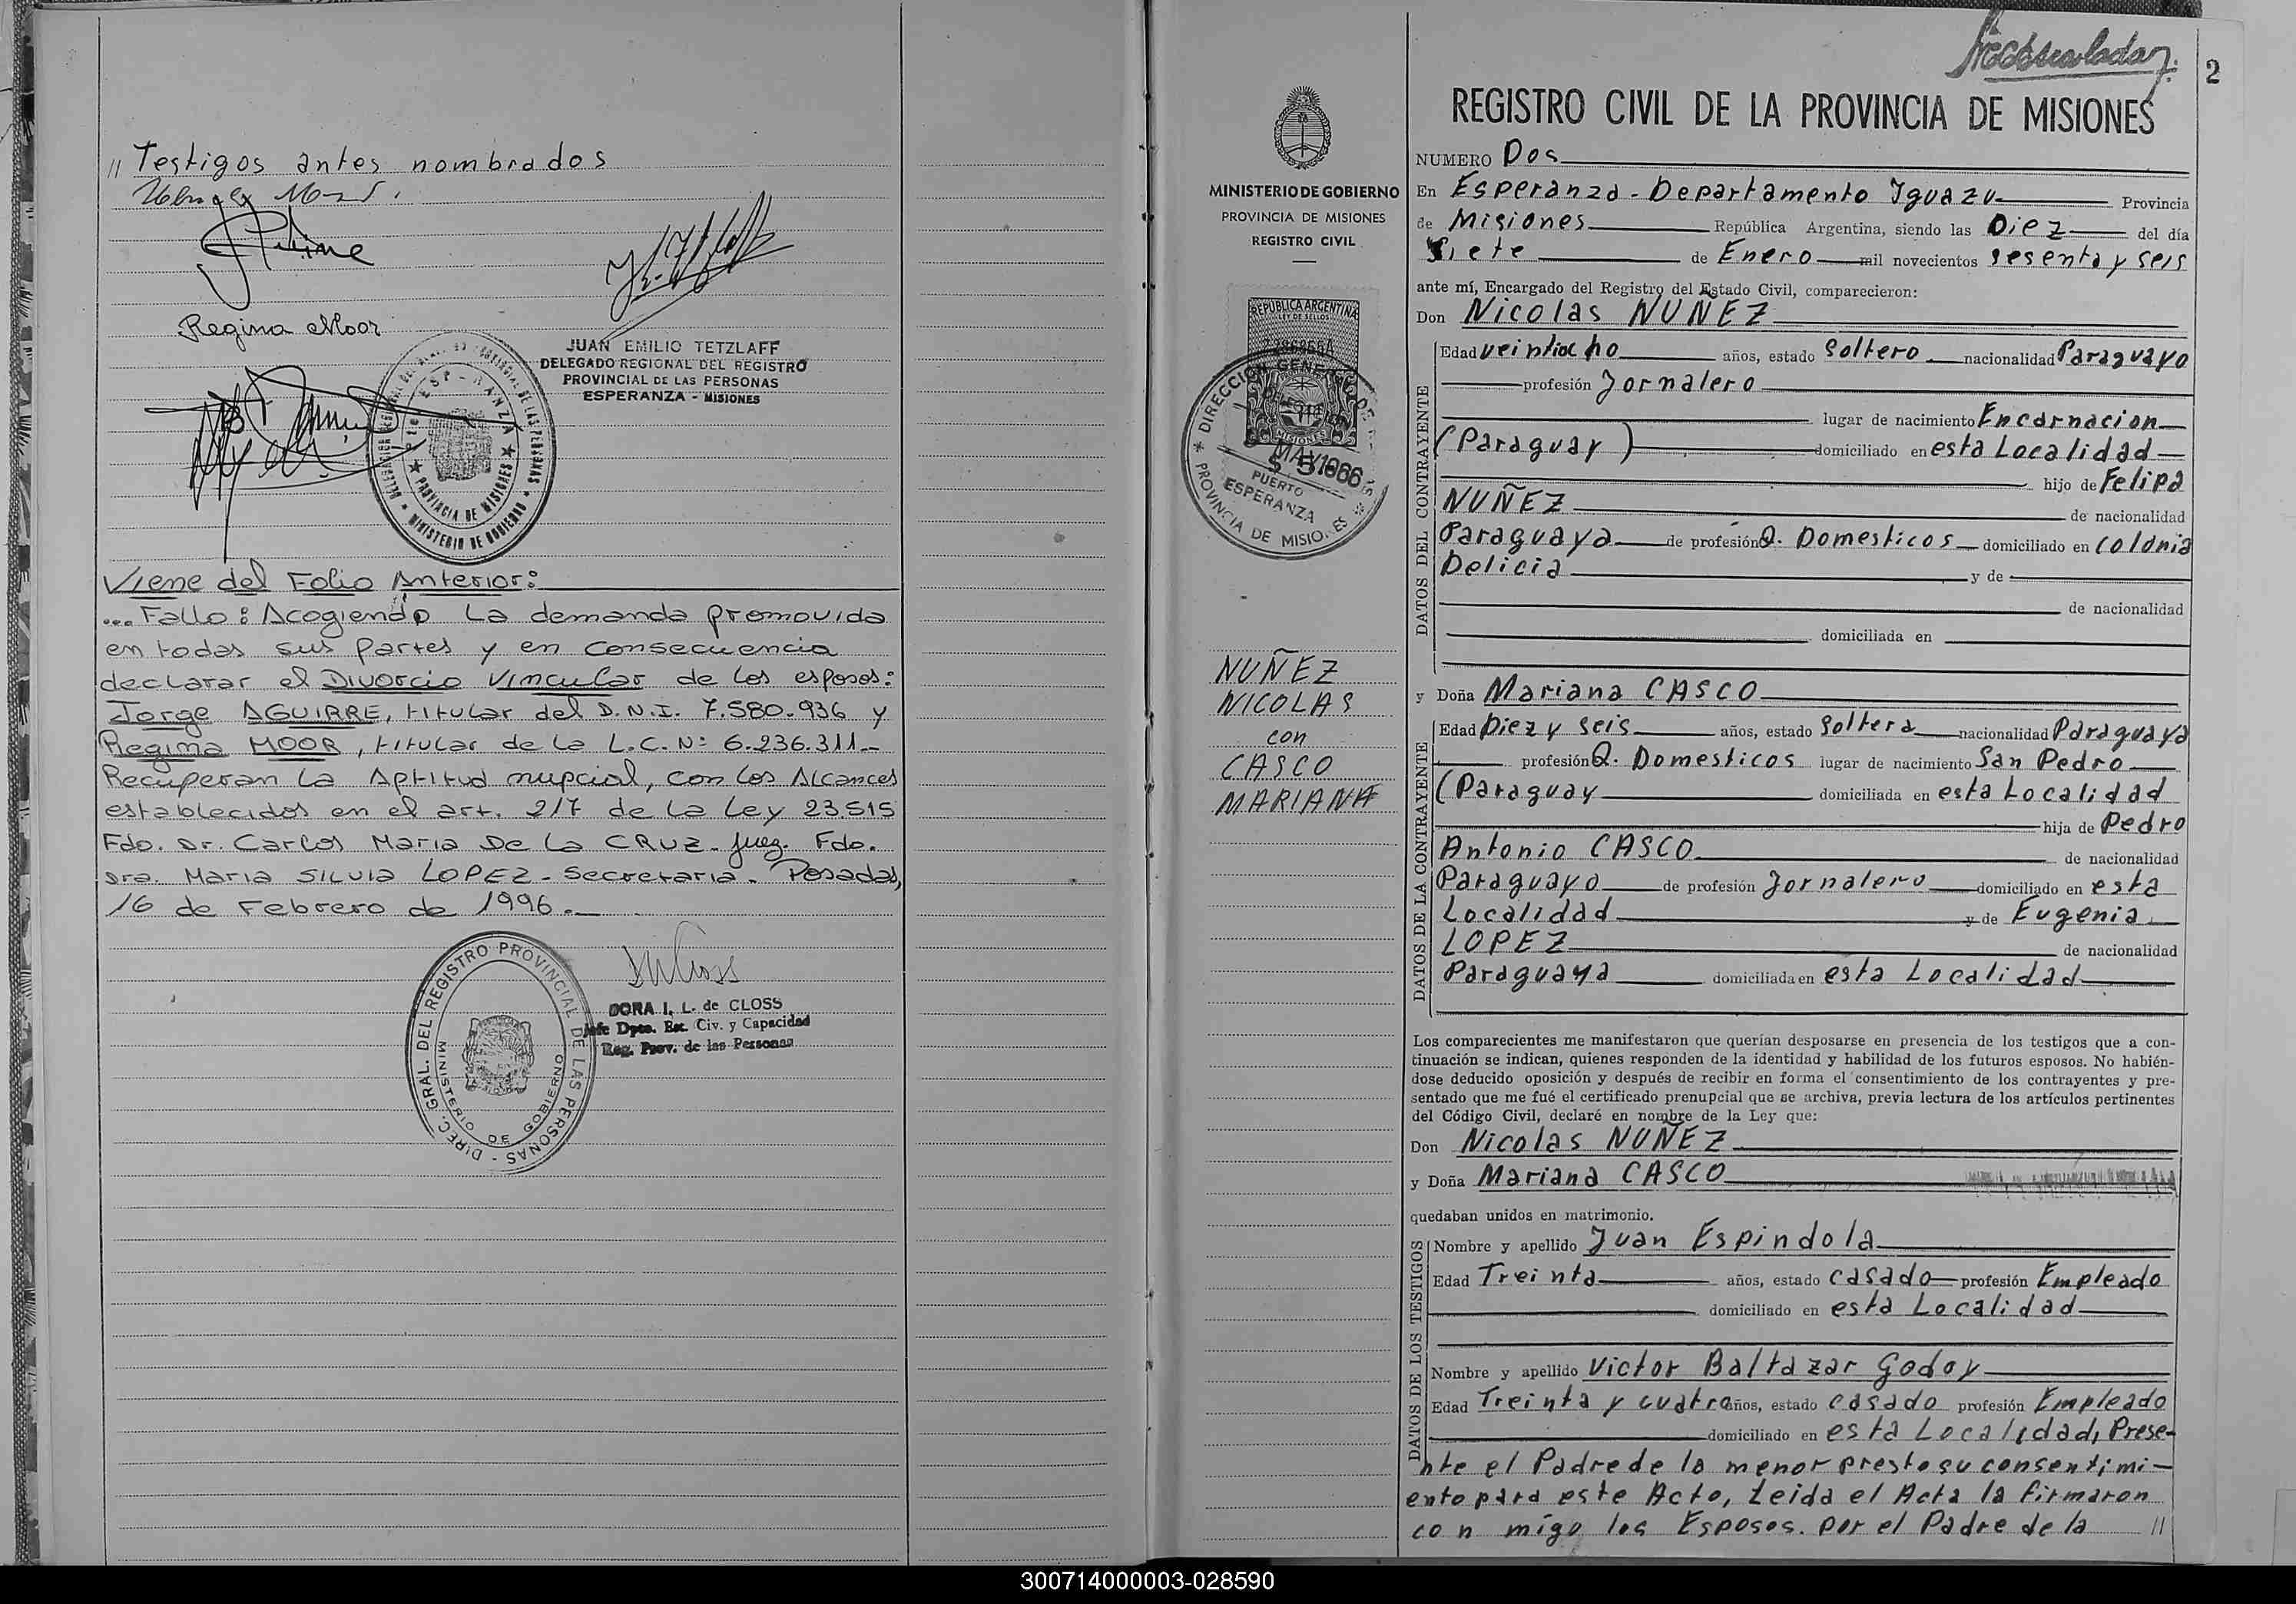 // Testigos antes nombrados
Regina Moor
JUAN EMILIO TETZLAFF
DELEGADO REGIONAL DEL REGISTRO
PROVINCIAL DE LAS PERSONAS
ESPERANZA - MISIONES
PROVINCIA DE MISIONES
MINISTERIO DE GOBIERNO
Viene del Folio Anterior:
... Fallo: Acogiendo La demanda promovida
en todas sus partes y en consecuencia
declarar el Divorcio Vincular de los esposos:
Jorge AGUIRRE, titular del D.N.I. 7.580.936 y
Regina MOOR, titular de la L.C. Nº 6.236.311.-
Recuperan la Aptitud nupcial, con los Alcances
establecidos en el art. 217 de la Ley 23.515
Fdo. Dr. Carlos Maria De La CRUZ - Juez. Fdo.
Dra. Maria SILVIA LOPEZ - Secretaria. Posadas,
16 de Febrero de 1996.-
DIREC. GRAL. DEL REGISTRO PROVINCIAL DE LAS PERSONAS -
MINISTERIO DE GOBIERNO
DORA I. L. de CLOSS
Jefe Dpto. Est. Civ. y Capacidad
Reg. Prov. de las Personas
MINISTERIO DE GOBIERNO
PROVINCIA DE MISIONES
REGISTRO CIVIL
REPUBLICA ARGENTINA
LEY DE SELLOS
MISIONES
DIRECCION GENERAL DE
5 MAY 1966
PUERTO
ESPERANZA
PROVINCIA DE MISIONES
NUÑEZ
NICOLAS
con
CASCO
MARIANA
2
REGISTRO CIVIL DE LA PROVINCIA DE MISIONES
NUMERO Dos
En Esperanza - Departamento Iguazu Provincia
de Misiones República Argentina, siendo las Diez del día
Siete de Enero mil novecientos sesenta y seis
ante mí, Encargado del Registro del Estado Civil, comparecieron:
Don Nicolas NUÑEZ
DATOS DEL CONTRAYENTE
Edad veintiocho años, estado Soltero nacionalidad Paraguayo
profesión Jornalero
lugar de nacimiento Encarnacion
(Paraguay) domiciliado en esta Localidad
hijo de Felipa
NUÑEZ de nacionalidad
Paraguaya de profesión Q. Domesticos domiciliado en Colonia
Delicia y de
de nacionalidad
domiciliada en
y Doña Mariana CASCO
DATOS DE LA CONTRAYENTE
Edad Diez y seis años, estado Soltera nacionalidad Paraguaya
profesión Q. Domesticos lugar de nacimiento San Pedro
(Paraguay domiciliada en esta Localidad
hija de Pedro
Antonio CASCO de nacionalidad
Paraguayo de profesión Jornalero domiciliado en esta
Localidad y de Eugenia
LOPEZ de nacionalidad
Paraguaya domiciliada en esta Localidad
Los comparecientes me manifestaron que querían desposarse en presencia de los testigos que a con-
tinuación se indican, quienes responden de la identidad y habilidad de los futuros esposos. No habién-
dose deducido oposición y después de recibir en forma el consentimiento de los contrayentes y pre-
sentado que me fué el certificado prenupcial que se archiva, previa lectura de los artículos pertinentes
del Código Civil, declaré en nombre de la Ley que:
Don Nicolas NUÑEZ
y Doña Mariana CASCO
quedaban unidos en matrimonio.
DATOS DE LOS TESTIGOS
Nombre y apellido Juan Espindola
Edad Treinta años, estado casado profesión Empleado
domiciliado en esta Localidad
Nombre y apellido Victor Baltazar Godoy
Edad Treinta y cuatro años, estado casado profesión Empleado
domiciliado en esta Localidad, Prese-
nte el Padre de la menor presto su consentimi-
ento para este Acto, Leida el Acta la firmaron
con migo los Esposos. por el Padre de la //
300714000003-028590